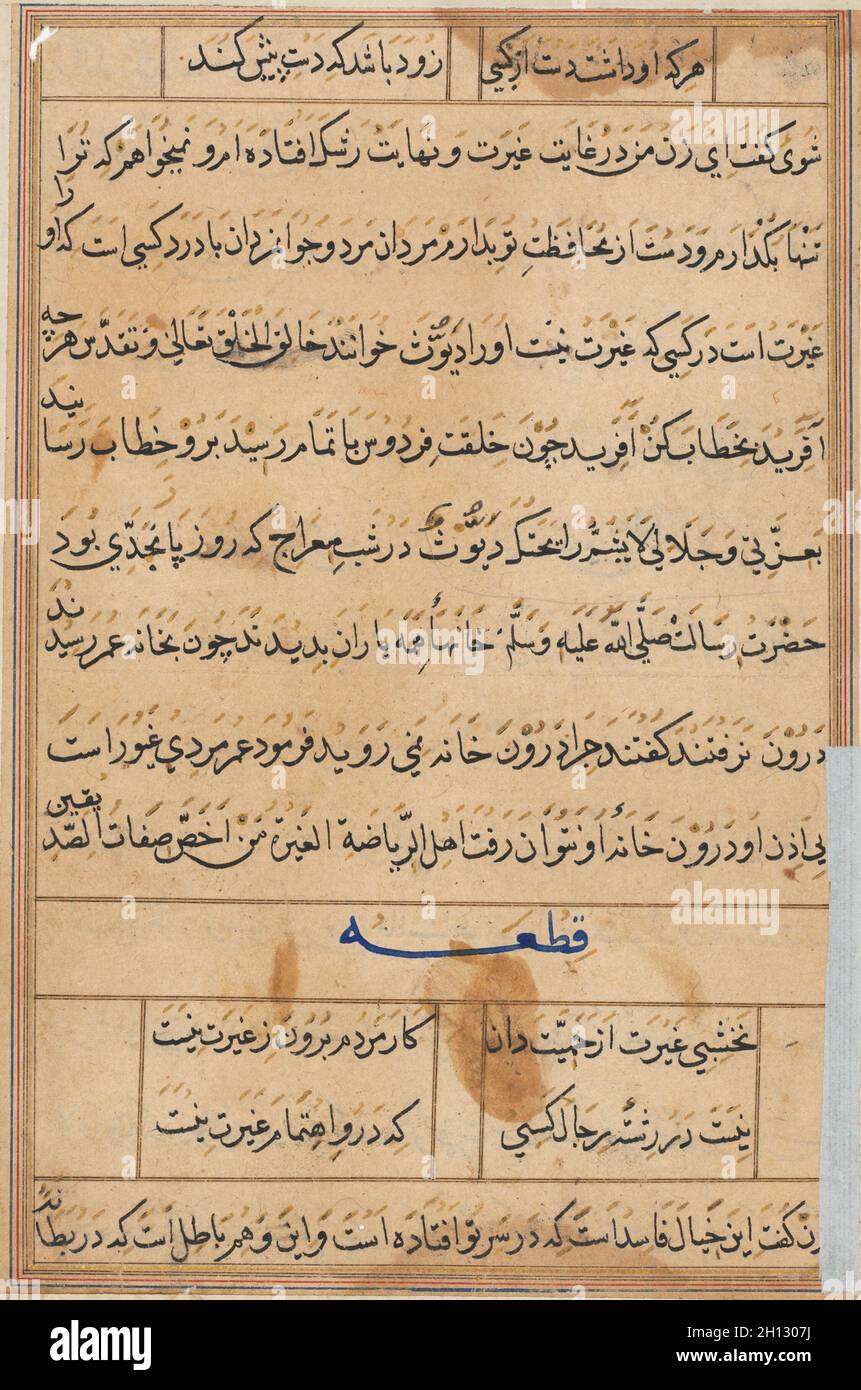 هر که او داشت دست از کسی زود باشد که دست پیش کند
شوی گفت ای زن من در غایت غیرت و نهایت رشک افتاده ام و نمیخواهم که ترا
تنها بگذارم و دست از محافظت تو بدارم مردان مرد و جوانمردان با درد کسی است که او را
غیرت است در کسی که غیرت نیست او را دیوث خوانند خالق الخلق تعالی و تقدس هر چه
آفرید بخطاب کن آفرید چون خلقت فردوس باتمام رسید برو خطاب رسانید
بعزتی و جلالی لا یشم رایحتک دیوث در شب معراج که روز بود
حضرت رسالت صلی الله علیه و سلم خانهاء همه یاران بدیدند چون بخانه عمر رسیدند
درون نرفتند گفتند چرا درون خانه نمی روید فرمود عمر مردی غیور است
بی اذن او درون خانهٔ او نتوان رفت اهل الریاضة الغیرة من اخص صفات الصدیقین
قطعه
نخشبی غیرت از حمیت دان کار مردم برون ز غیرت نیست
نیست در رشتهٔ رجال کسی که درو اهتمام غیرت نیست
زن گفت این خیال فاسد است که در سر تو افتاده است و این وهم باطل است که در
alamy
Image ID: 2H1307J
www.alamy.com